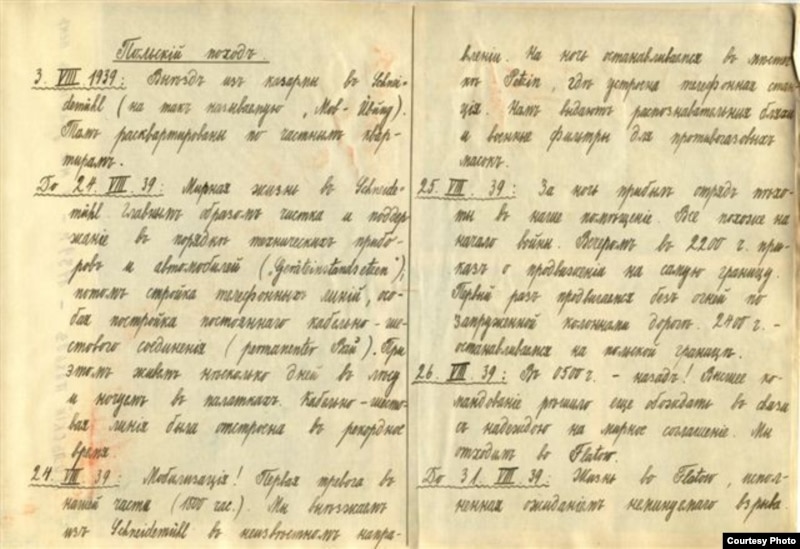 Польскій походъ.
3. VIII 1939: Выѣздъ изъ казармы въ Schnei-
demühl (на такъ называемую „Mob-Übung).
Тамъ расквартированы по частнымъ квар-
тирамъ.
До 24. VIII. 39: Мирная жизнь въ Schneide-
mühl. Главнымъ образомъ чистка и поддер-
жаніе въ порядкѣ техническихъ прибо-
ровъ и автомобилей („Geräteinstandsetzen“),
потомъ стройка телефонныхъ линій, осо-
бая постройка постояннаго кабельно-ше-
стового соединенія (permanenter Bau). При
этомъ живемъ нѣсколько дней въ лѣсу
и ночуемъ въ палаткахъ. Кабельно-шесто-
вая линія была отстроена въ рекордное
время
24. VIII. 39: Мобилизація! Первая тревога въ
нашей части (1500 час.). Мы выѣзжаемъ
изъ Schneidemühl въ неизвѣстномъ напра-
вленіи. На ночь останавливаемся въ мѣстеч-
кѣ Petzin, гдѣ устроена телефонная стан-
ція. Намъ выдаютъ распознавательныя бляхи
и военные фильтры для противогазовыхъ
масокъ.
25. VIII. 39: За ночь прибылъ отрядъ пѣхо-
ты въ наше помѣщеніе. Все похоже на
начало войны. Вечеромъ въ 2200 ч. при-
казъ о продвиженіи на самую границу.
Первый разъ продвигаемся безъ огней по
запруженной колоннами дорогѣ. 2400 ч. -
останавливаемся на польской границѣ.
26. VIII. 39: Въ 0500 ч. - назадъ! Высшее ко-
мандованіе рѣшило еще обождать въ связи
съ надеждою на мирное соглашеніе. Мы
отходимъ во Flatow.
До 31. VIII. 39: Жизнь во Flatow, испол-
ненная ожиданіемъ неминуемаго взрыва.
Courtesy Photo